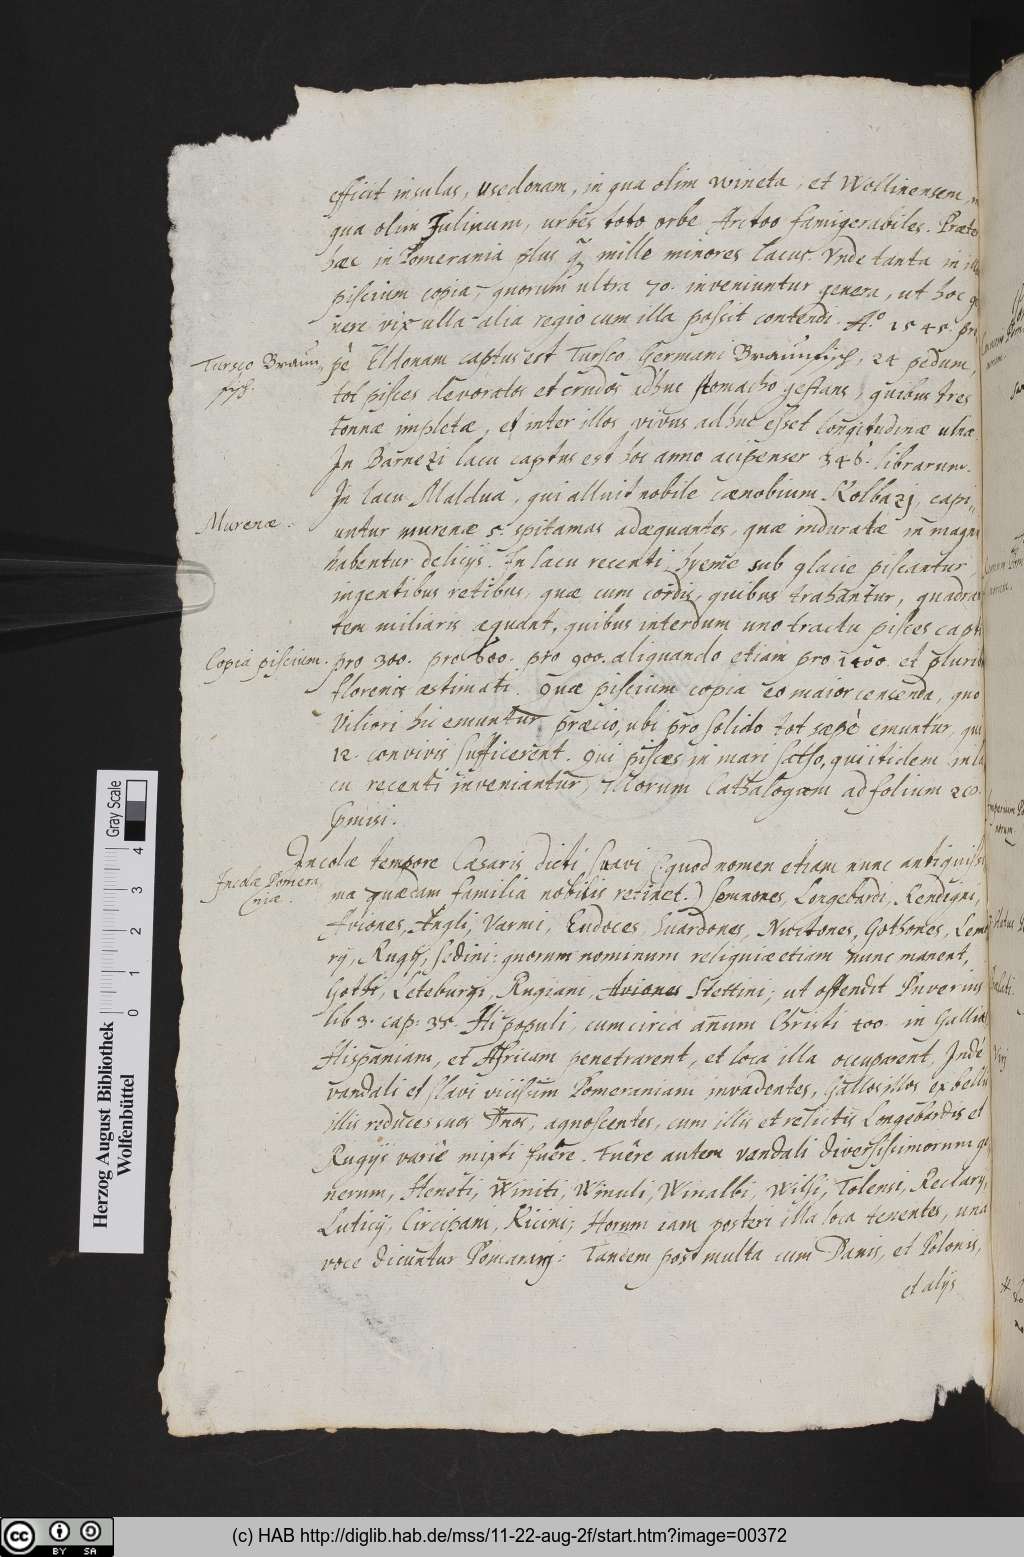 efficit insulas, usedonam, in qua olim wineta, et Wollinensem,
qua olim Julinum, urbes toto orbe Arctoo famigerabiles. Præte
hæc in Pomerania plus q mille minores lacus. Vnde tanta in illa
piscium copia, quorum ultra 70. inveniuntur genera, ut hoc ge
nere vix ulla alia regio cum illa possit contendi. A.º 1545. pro
Tursco Braun
fisch.
pè Eldonam captus est Tursco Germani Braunfisch, 24 pedum,
tot pisces devoratos et crudos adhuc stomacho gestans, quibus tres
tonnæ impletæ, et inter illos vivus adhuc esset longitudinæ ulnæ.
In Barnezi lacu captus est hoc anno acipenser 346. librarum.
In lacu Maldua, qui alluit nobile cænobium Kolbazj, capi
Murenæ.
untur murenæ 5. spitamas adæquantes, quæ induratæ in magnis
habentur delicijs. In lacu recenti hyeme sub glacie piscantur
ingentibus retibus, quæ cum cordis, quibus trahantur, quadran
tem miliaris æquant, quibus interdum uno tractu pisces capti
Copia piscium.
pro 300. pro 600. pro 900. aliquando etiam pro 1400. et pluribus
florenis æstimati. Quæ piscium copia eo maior censenda, quo
viliori hic emuntur præcio, ubi pro solido tot sæpè emuntur, quæ
12. convivis sufficerent. Qui pisces in mari salso, qui itidem in la
cu recenti inveniantur, illorum Cathalogum ad folium 260.
Incolæ Pomera
niæ.
Incolæ tempore Cæsaris dicti Suavi (: quod nomen etiam nunc antiquissi
ma quædam familia nobilis retinet.) Semnones, Longebardi, Rendigni,
Aviones, Angli, Varmi, Eudoces, Suardones, Nuitones, Gothones, Lemo
rij, Rugij, Sedini: quorum nominum reliquiæ etiam nunc manent,
Gothi, Leteburgi, Rugiani, Aviones Stettini; ut ostendit
lib 3. cap: 35. Hi populi, cum circa annum Christi 400. in Galliam
Hispaniam, et Africam penetrarent, et loca illa occuparent, Inde
vandali et slavi vicissim Pomeraniam invadentes, Gallos illos ex bello
illis reduces suos Dnos, agnoscentes, cum illis et relictis Longebardis et
Rugijs varie mixti fuere. Fuere autem vandali diversissimorum ge
nerum, Heneti, Winiti, Winuli, Winalbi, Wilsi, Tolensi, Reclarij,
Luticij, Circipani, Kicini; Horum iam posteri illa loca tenentes, una
voce dicuntur Pomarani: Tandem post multa cum Danis, et Polonis,
et alijs
Herzog August Bibliothek
Wolfenbüttel
Gray Scale
0 1 2 3 4
cc BY SA
(c) HAB http://diglib.hab.de/mss/11-22-aug-2f/start.htm?image=00372